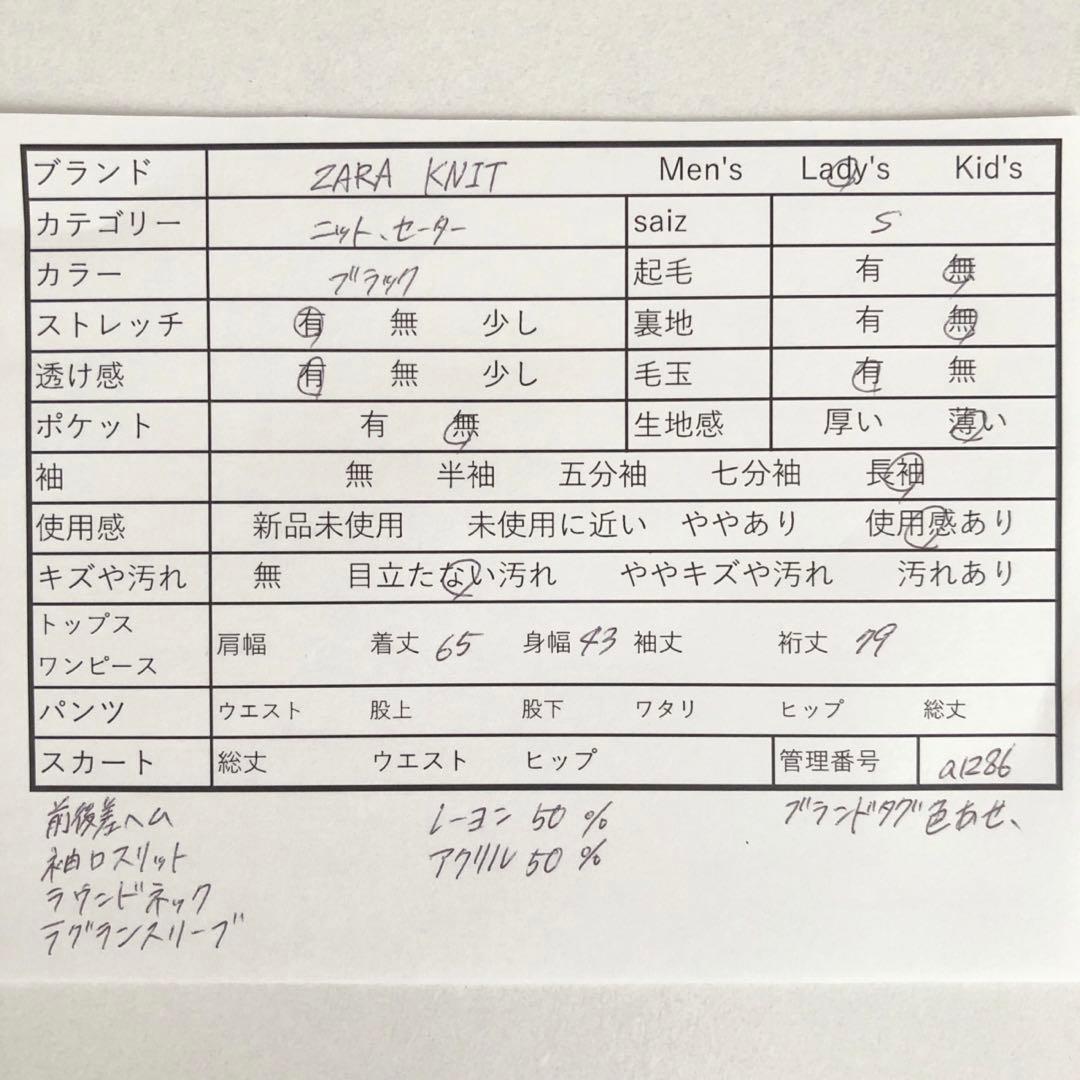 ブランド ZARA KNIT Men's Lady's Kid's
カテゴリー ニット、セーター saiz S
カラー ブラック 起毛 有 無
ストレッチ 有 無 少し 裏地 有 無
透け感 有 無 少し 毛玉 有 無
ポケット 有 無 生地感 厚い 薄い
袖 無 半袖 五分袖 七分袖 長袖
使用感 新品未使用 未使用に近い ややあり 使用感あり
キズや汚れ 無 目立たない汚れ ややキズや汚れ 汚れあり
トップス
ワンピース 肩幅 着丈 65 身幅 43 袖丈 裄丈 79
パンツ ウエスト 股上 股下 ワタリ ヒップ 総丈
スカート 総丈 ウエスト ヒップ 管理番号 a1286
前後差ヘム レーヨン 50 % ブランドタグ色あせ、
袖口スリット アクリル 50 %
ラウンドネック
ラグランスリーブ